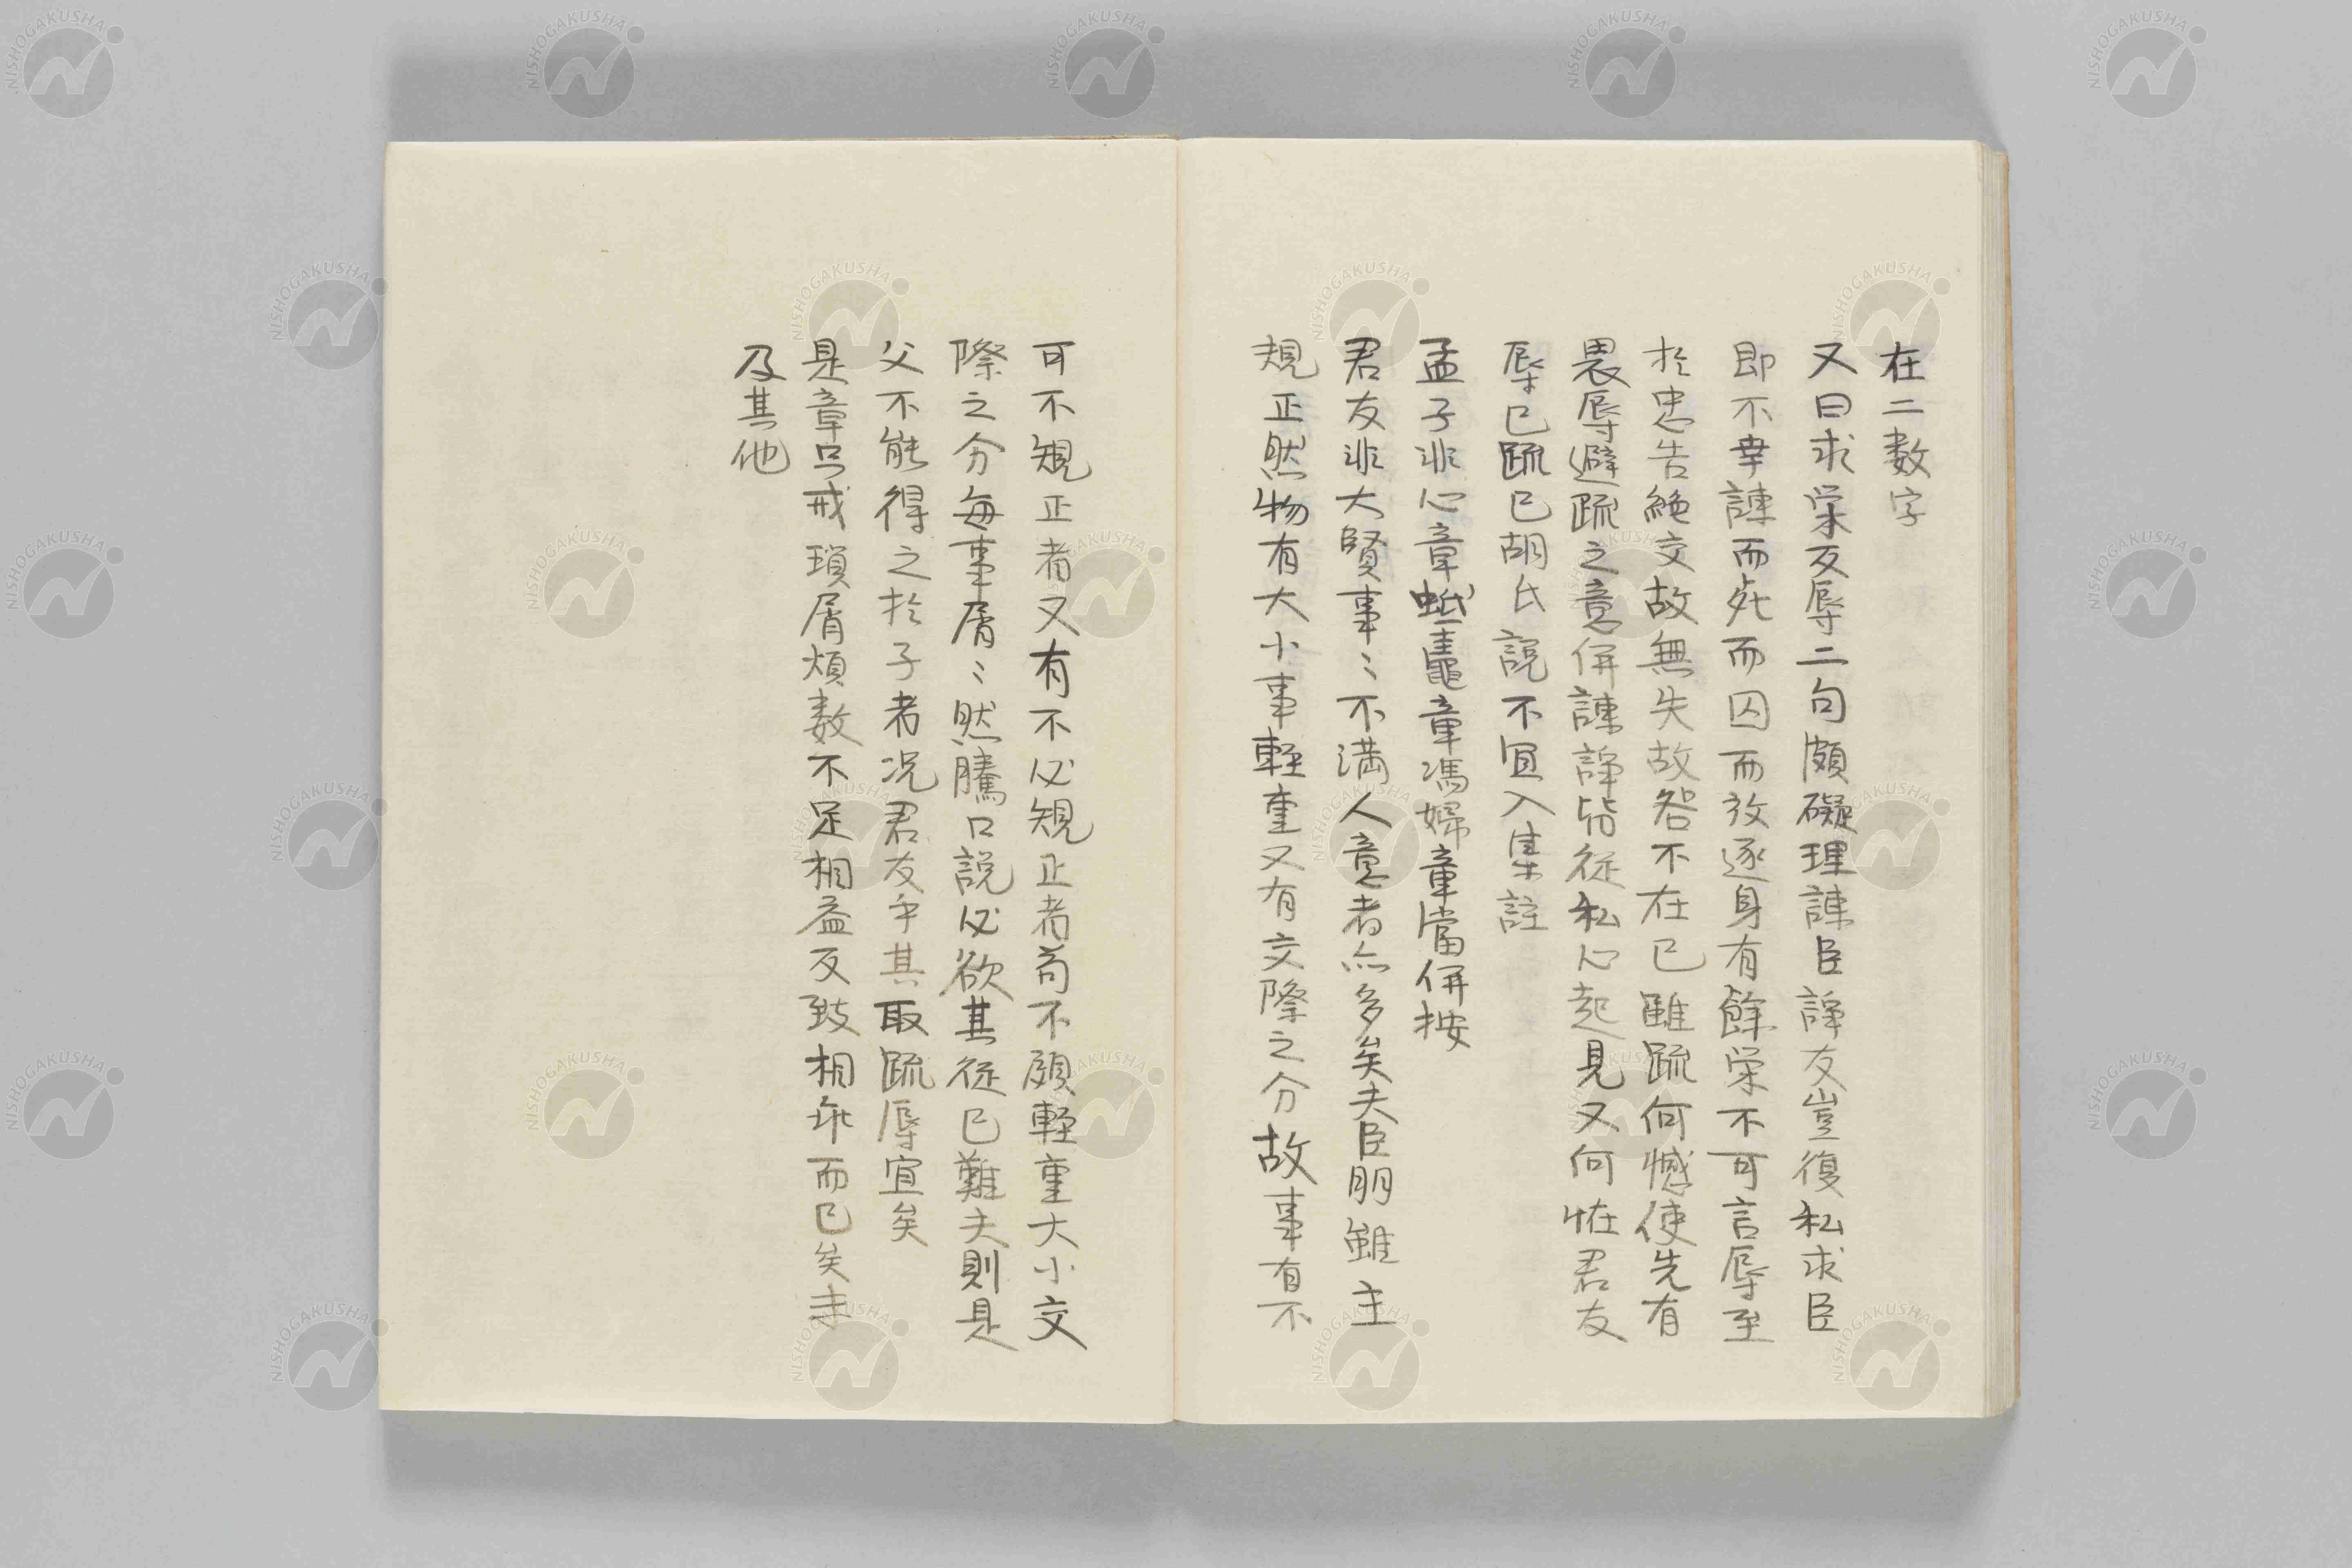 在二数字
又曰求栄反辱二句頗礙理諫臣諍友豈復私求臣
即不幸諫而死而囚而放逐身有餘栄不可言辱至
於忠告絶交故無失故咎不在已雖疏何憾使先有
畏辱避疏之意併諫諍皆従私心起見又何怪君友
辱已疏已胡氏説不宜入集註
孟子非心章蚳鼃章馮婦章當併按
君友非大賢事〻不満人意者亦多矣夫臣朋雖主
規正然物有大小事軽重又有交際之分故事有不
可不規正者又有不必規正者苟不顧軽重大小交
際之分毎事屑〻然騰口説必欲其従已難夫則是
父不能得之於子者况君友乎其取疏辱宜矣
是章只戒瑣屑煩数不足相益反致相乖而已矣未
及其他
NISHOGAKUSHA